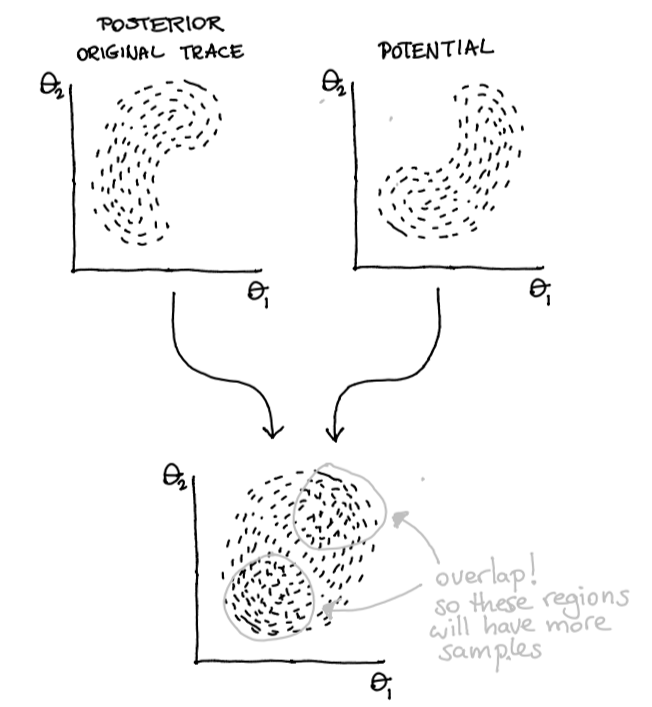 POSTERIOR
ORIGINAL TRACE
POTENTIAL
θ₂
θ₁
θ₂
θ₁
θ₂
θ₁
overlap!
so these regions
will have more
samples